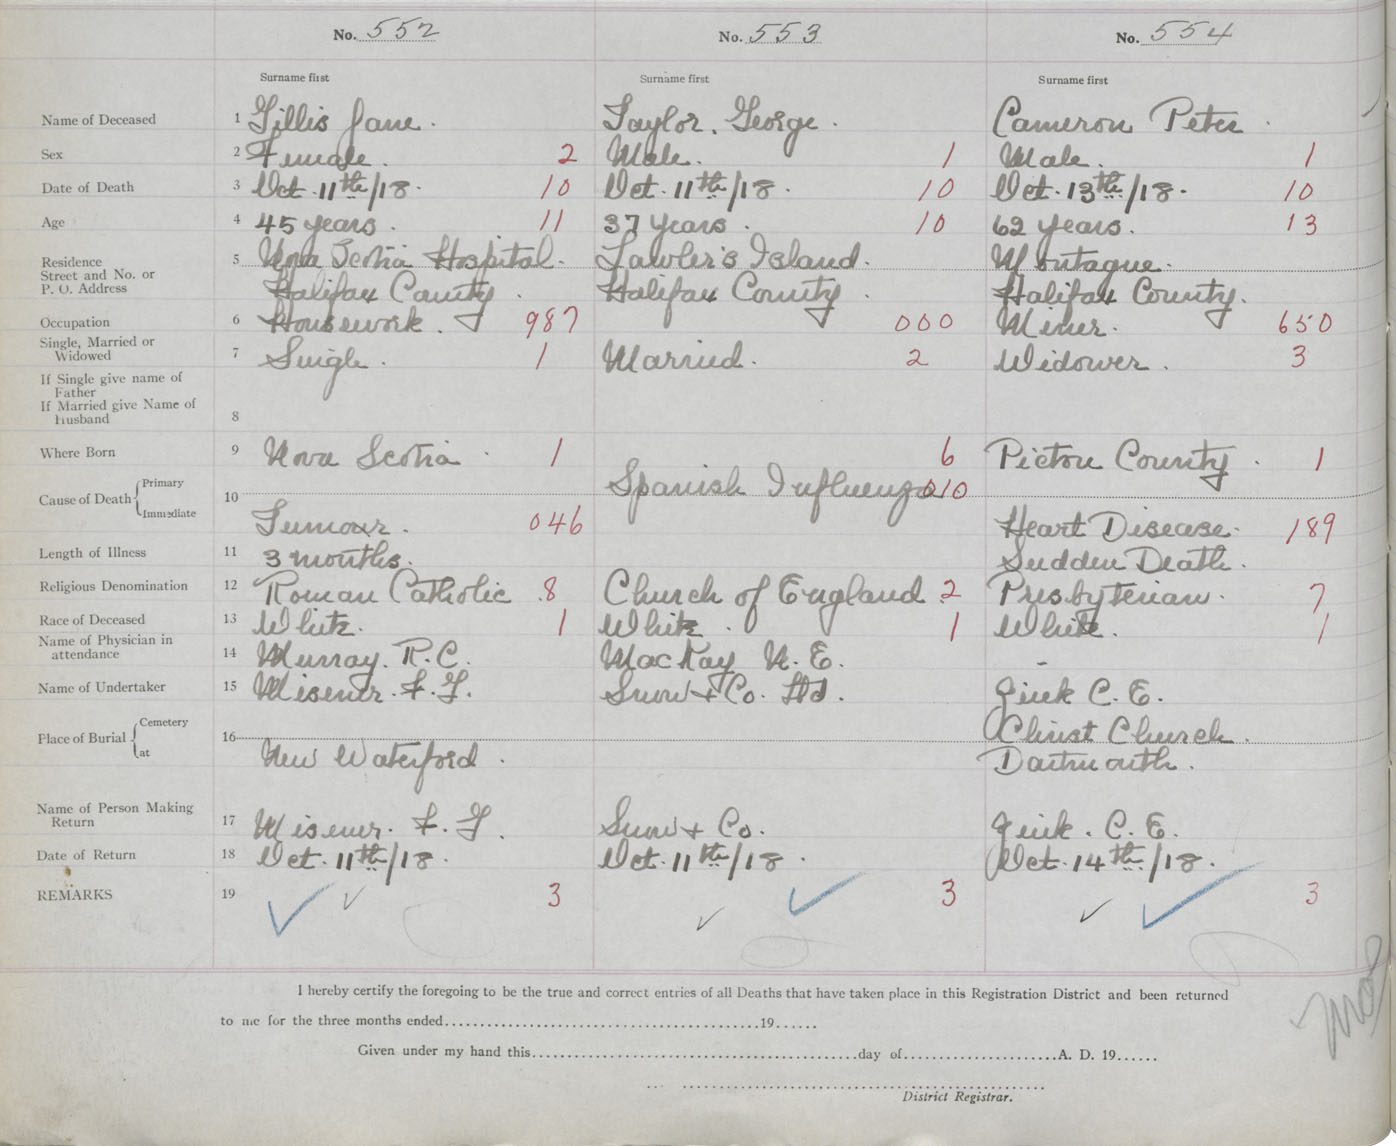 No. 552 No. 553 No. 554
Surname first Surname first Surname first
Name of Deceased 1 Gillis Jane. Taylor, George. Cameron Peter.
Sex 2 Female. 2 Male. 1 Male. 1
Date of Death 3 Oct. 11th/18. 10 Oct. 11th/18. 10 Oct. 13th/18. 10
Age 4 45 years. 11 37 years. 10 62 years. 13
Residence 5 Nova Scotia Hospital. Lawler's Island. Montague.
Street and No. or
P. O. Address Halifax County. Halifax County. Halifax County.
Occupation 6 Housework. 987 000 Miner. 650
Single, Married or
Widowed 7 Single. 1 Married. 2 Widower. 3
If Single give name of
Father
If Married give Name of
Husband 8
Where Born 9 Nova Scotia. 1 6 Pictou County. 1
Cause of Death Primary 10 Spanish Influenza 010
Immediate Tumour. 046 Heart Disease. 189
Length of Illness 11 3 months. Sudden Death.
Religious Denomination 12 Roman Catholic. 8 Church of England. 2 Presbyterian. 7
Race of Deceased 13 White. 1 White. 1 White. 1
Name of Physician in
attendance 14 Murray. R.C. MacKay N. E. -
Name of Undertaker 15 Misener. F. G. Snow & Co. Ltd. C. E.
Place of Burial Cemetery 16 Christ Church.
at New Waterford. Dartmouth.
Name of Person Making
Return 17 Misener. F. G. Snow & Co. C. E.
Date of Return 18 Oct. 11th/18. Oct. 11th/18. Oct. 14th/18.
REMARKS 19 3 3 3
I hereby certify the foregoing to be the true and correct entries of all Deaths that have taken place in this Registration District and been returned
to me for the three months ended..........19......
Given under my hand this..........day of..........A. D. 19......
District Registrar.